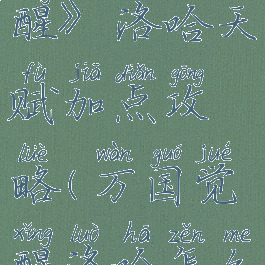 醒》洛哈天
fù jiā diǎn gōng
赋加点攻
lüè wàn guó jué
略(万国觉
xǐng luò hā zěn me
醒洛哈怎么